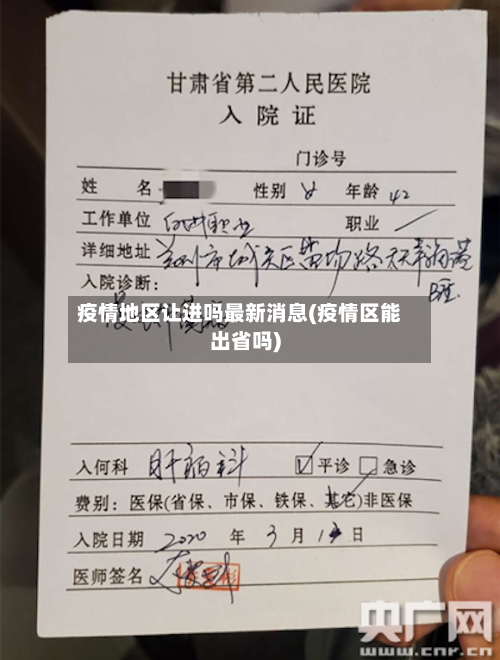 甘肃省第二人民医院
入院证
门诊号
姓 名 性别 女 年龄 42
工作单位 职业
详细地址 兰州市城关区苗圃路天
入院诊断：
疫情地区让进吗最新消息(疫情区能
出省吗)
入何科 肝病科 ☑平诊 □急诊
费别：医保(省保、市保、铁保、其它)非医保
入院日期 2020 年 3 月 日
医师签名
央广网
www.cnr.cn